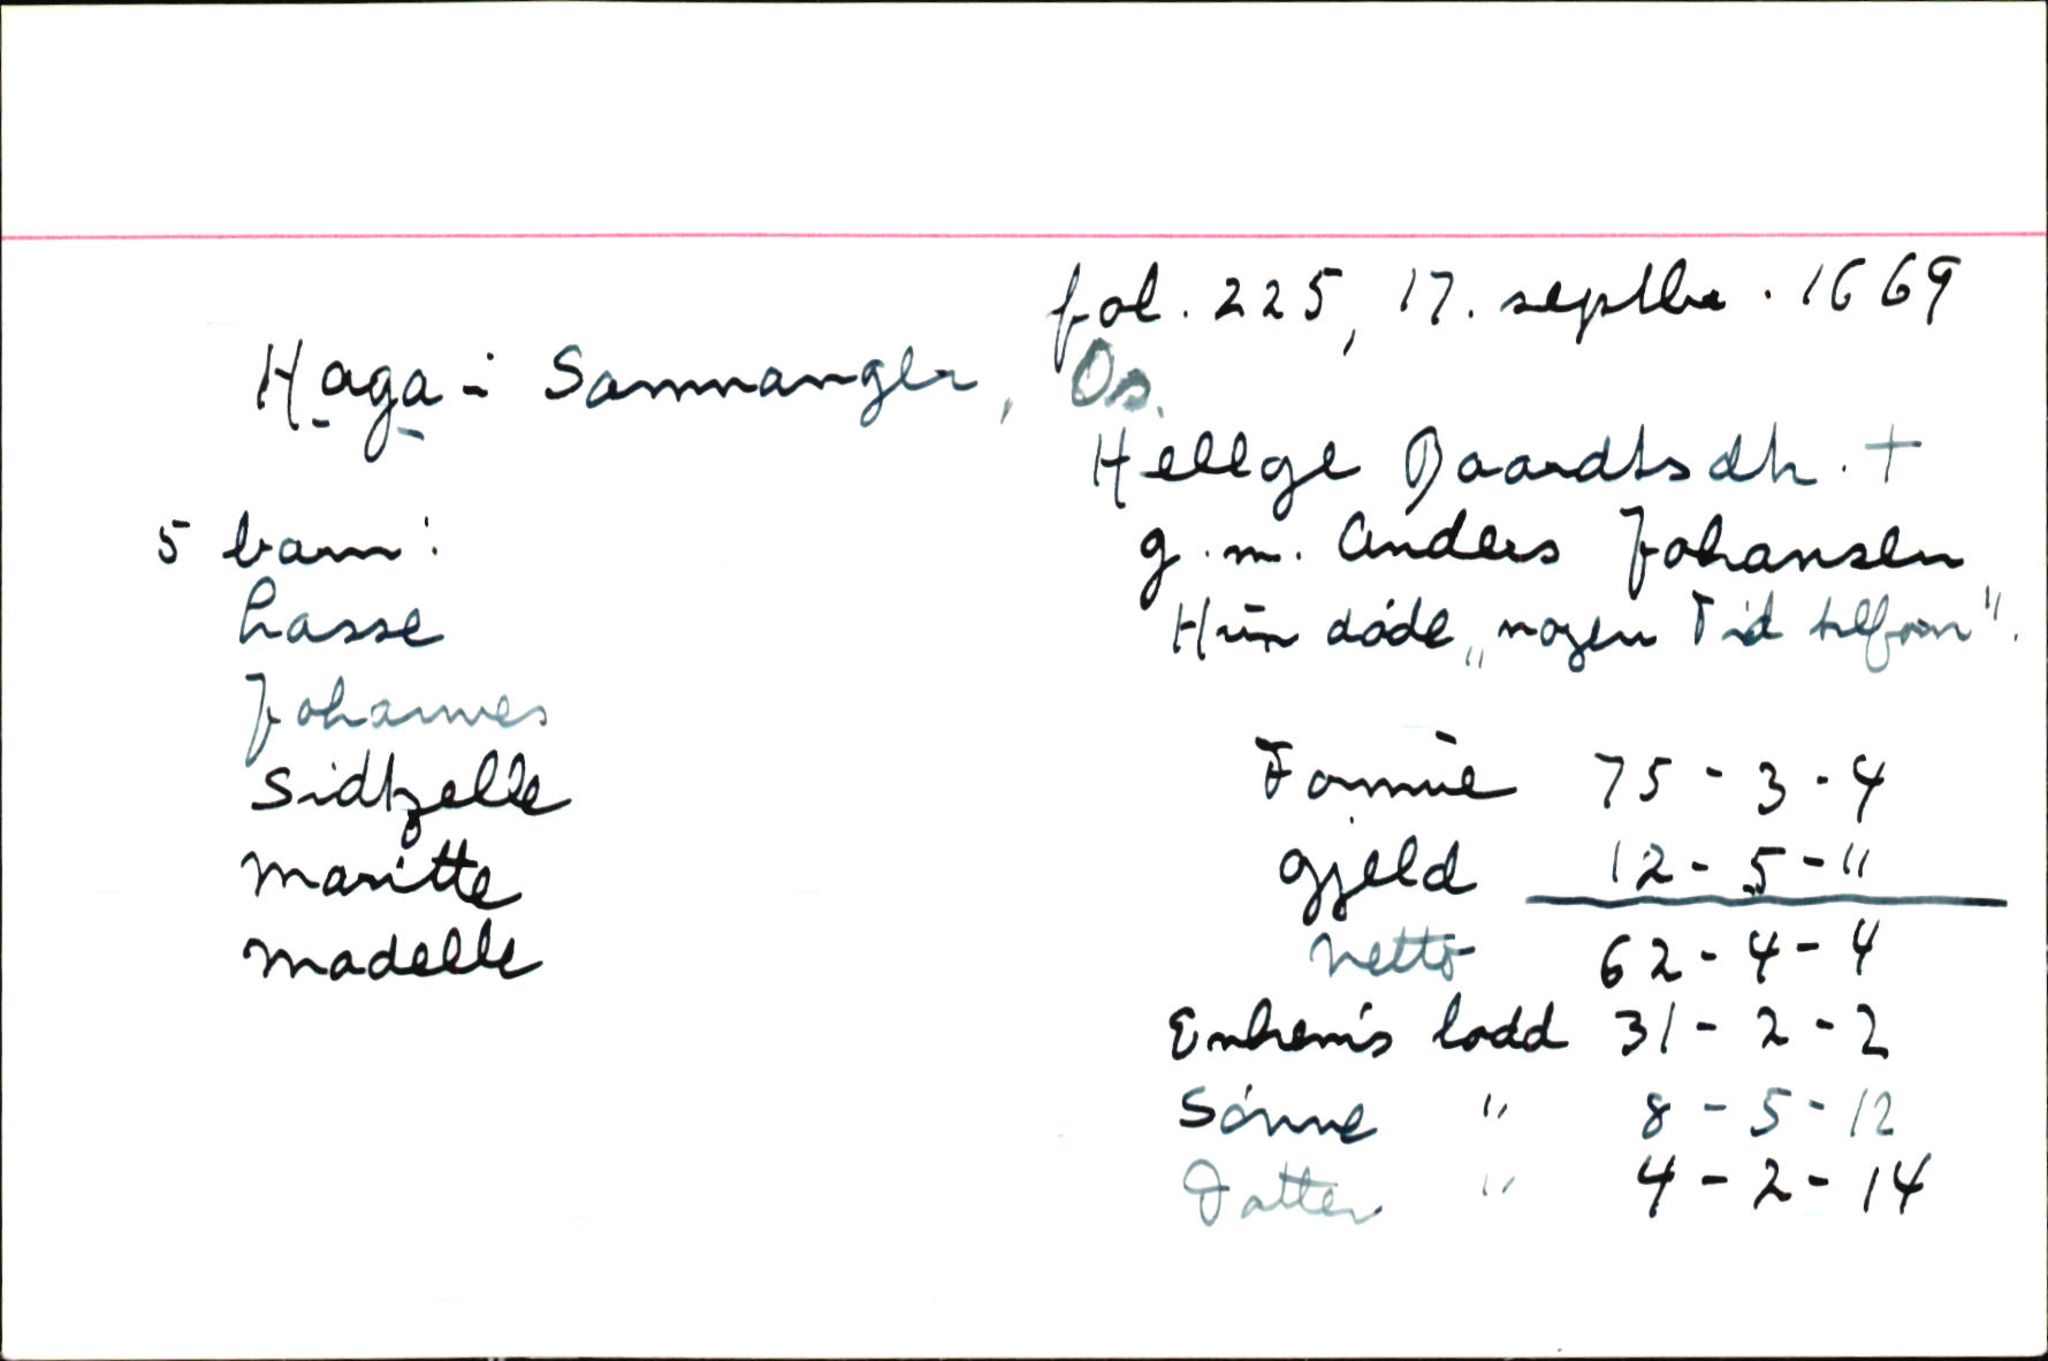 fol. 225, 17. septbr. 1669
Haga i Sammanger, Os.
Hellge Baardts dtr. +
g.m. Anders Johansen
Hun døde „nogen Tid tilforn".
5 barn:
Lasse
Johannes
Sidtzelle
Maritte
Madelle
Formue 75 - 3 - 4
Gjeld 12 - 5 - "
Netto 62 - 4 - 4
Enkem's lodd 31 - 2 - 2
Sønne " 8 - 5 - 12
Datter " 4 - 2 - 14